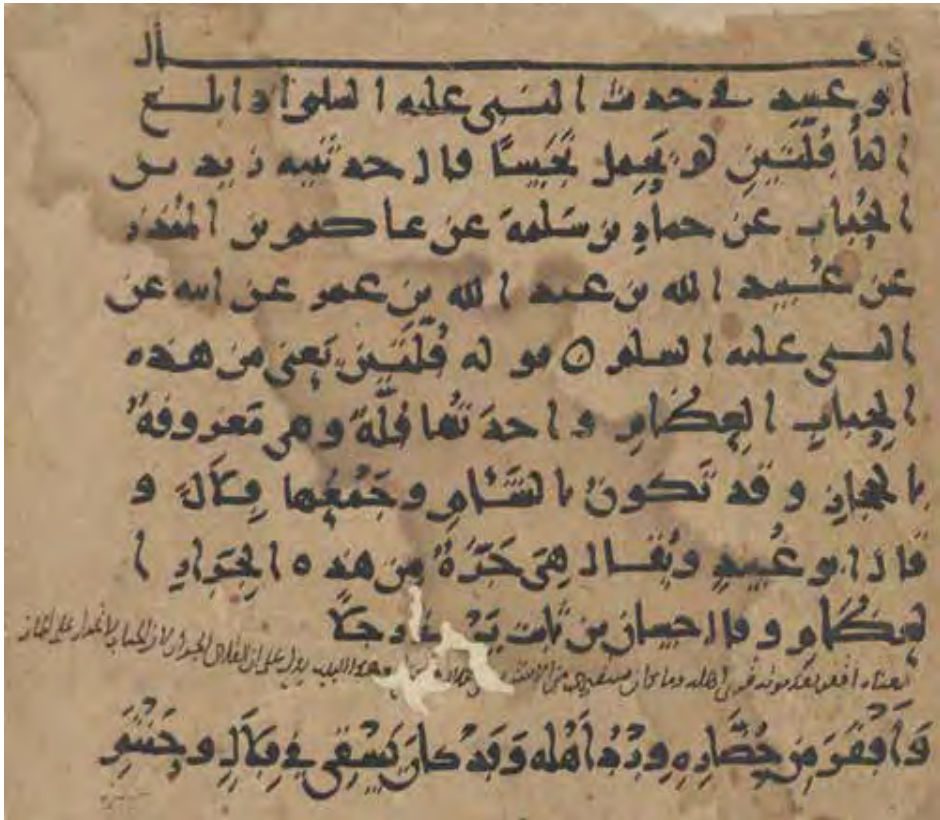 قال
ابو عبيد في حديث النبى عليه السلم اذا بلغ
الماُ قُلَّتَينِ لم يَحمِل نَجَسًا قال حدثنيه زيد بن
الحُباب عن حمادِ بن سَلمةَ عن عاصم بن المُنذر
عن عُبيد الله بن عبد الله بن عمر عن ابيه عن
النبى عليه السلم ٥ قوله قُلَّتَين يَعنى من هذه
الحِبابِ العِظامِ واحدتُها قُلَّةٌ وهى مَعروفةٌ
بالحجاز وقد تَكونُ بالشَّامِ وجَمْعُها قِلالٌ و
قال ابو عُبيدٍ ويُقال هِىَ جَرَّةٌ مِن هذه الجِرَارِ ا
لعِظام وقال حسان بن ثابت رجلًا
وهذا البيت يدل على ان القلال الجرار لان الحباب لا
وَأَقْفَرَ مِن حُضَّارِهِ وِرْدُ أَهْلِه وَقَد كانَ يَسْقِى فِى قِلالٍ وحَنْتَمِ